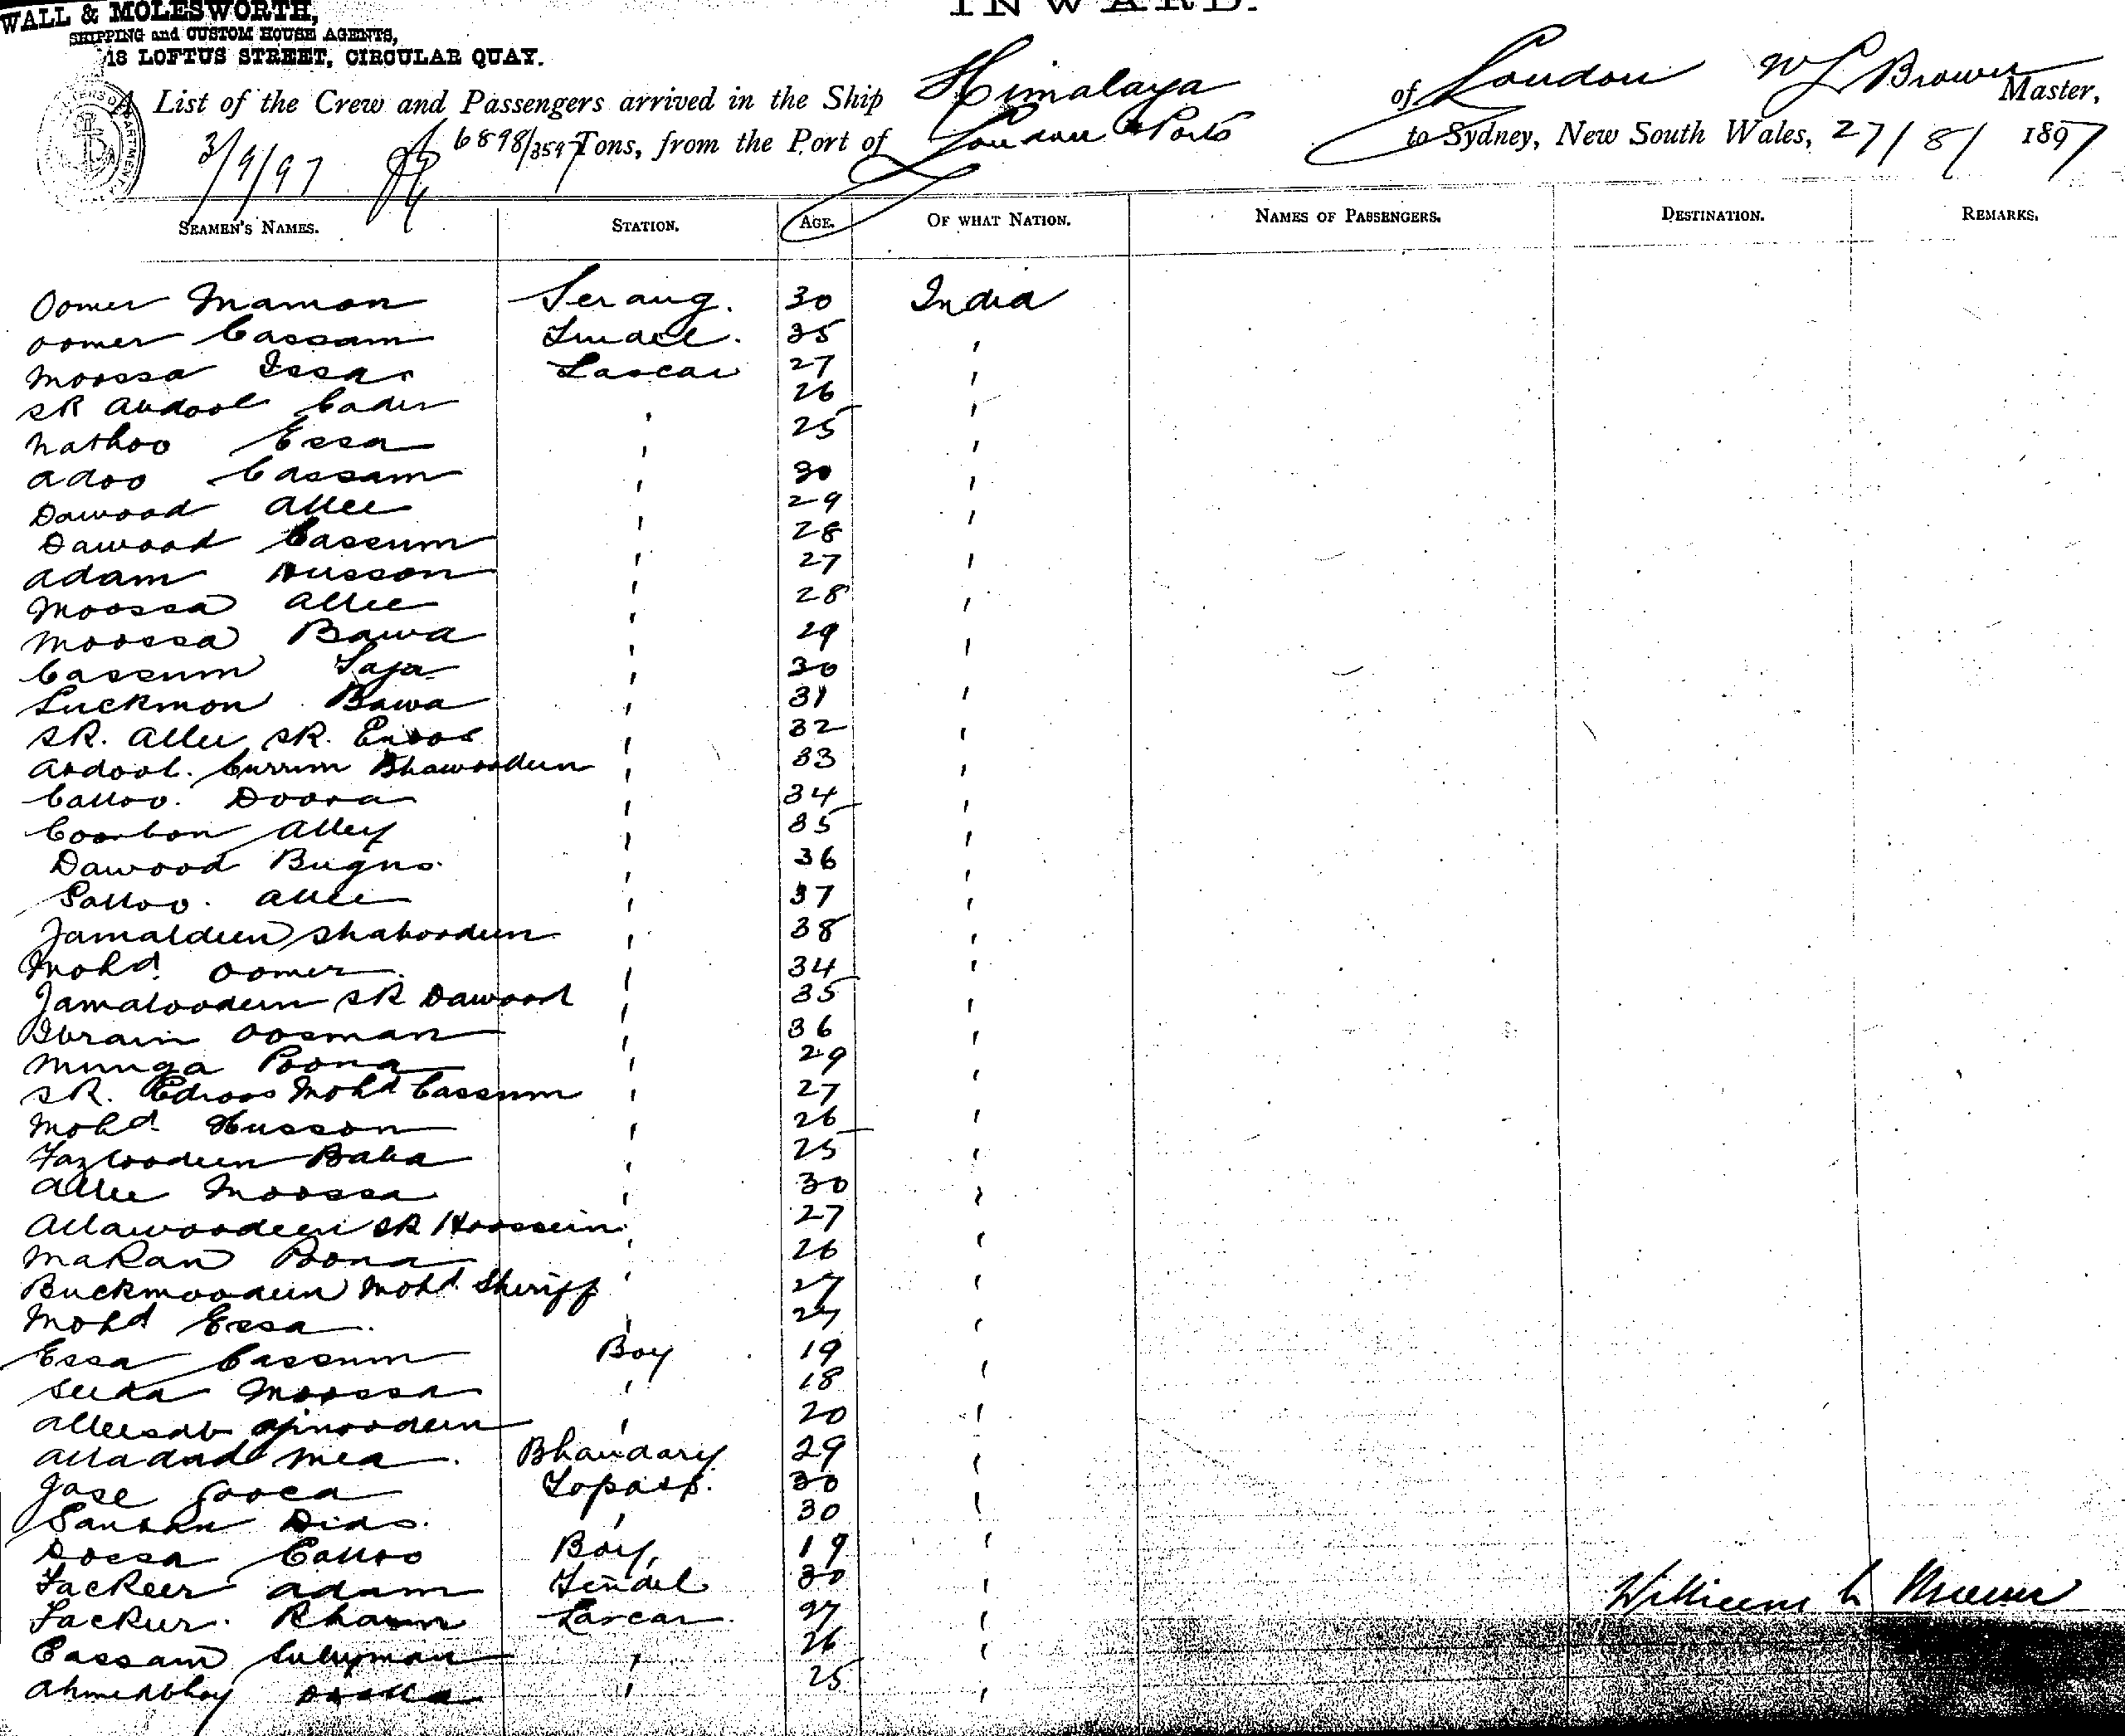 WALL & MOLESWORTH,
SHIPPING and CUSTOM HOUSE AGENTS,
18 LOFTUS STREET, CIRCULAR QUAY.
INWARD.
A List of the Crew and Passengers arrived in the Ship Himalaya of London W L Brown Master,
3/9/97 6898/3597 Tons, from the Port of London & Ports to Sydney, New South Wales, 27/8/1897
SEAMEN'S NAMES. STATION. AGE. OF WHAT NATION. NAMES OF PASSENGERS. DESTINATION. REMARKS.
Oomer Mamon Serang. 30 India
oomer Cassam Tindel. 35 "
Moossa Issa Lascar 27 "
SK Abdool Cader " 26 "
Nathoo Essa " 25 "
Adoo Cassam " 30 "
Dawood Allee " 29 "
Dawood Cassum " 28 "
Adam Husson " 27 "
Moossa Allee " 28 "
Moossa Bawa " 29 "
Cassum " 30 "
Luckmon Bawa " 31 "
SK. Allee SK. " 32 "
Abdool. Currim " 33 "
Calloo. Doova " 34 "
Coorbon Alley " 35 "
Dawood " 36 "
Calloo. Allee " 37 "
Jamaldeen Shaboodeen " 38 "
Mohd. Oomer " 34 "
Jamaloodeen SK Dawood " 35 "
Ibraim Oosman " 36 "
Munga Poona " 29 "
SK. Edroos Mohd Cassum " 27 "
Mohd Husson " 26 "
Fazloodeen Baba " 25 "
Allee Moossa " 30 "
Allawoodeen SK Hoossein " 27 "
Makan Poona " 26 "
Buckmoodeen Mohd Sheriff " 27 "
Mohd Essa " 27 "
Essa Cassum Boy 19 "
Moossa " 18 "
Alleesab " 20 "
Alladad Mea. Bhandary 29 "
Jose Topass. 30 "
Dias. " 30 "
Dossa Calloo Boy, 19 "
Fackeer Adam Tindel 30 "
Fackur. Khann Lascar. 27 "
Cassam Sulyman " 26 "
Ahmedbhoy " 25 "
William L Brown